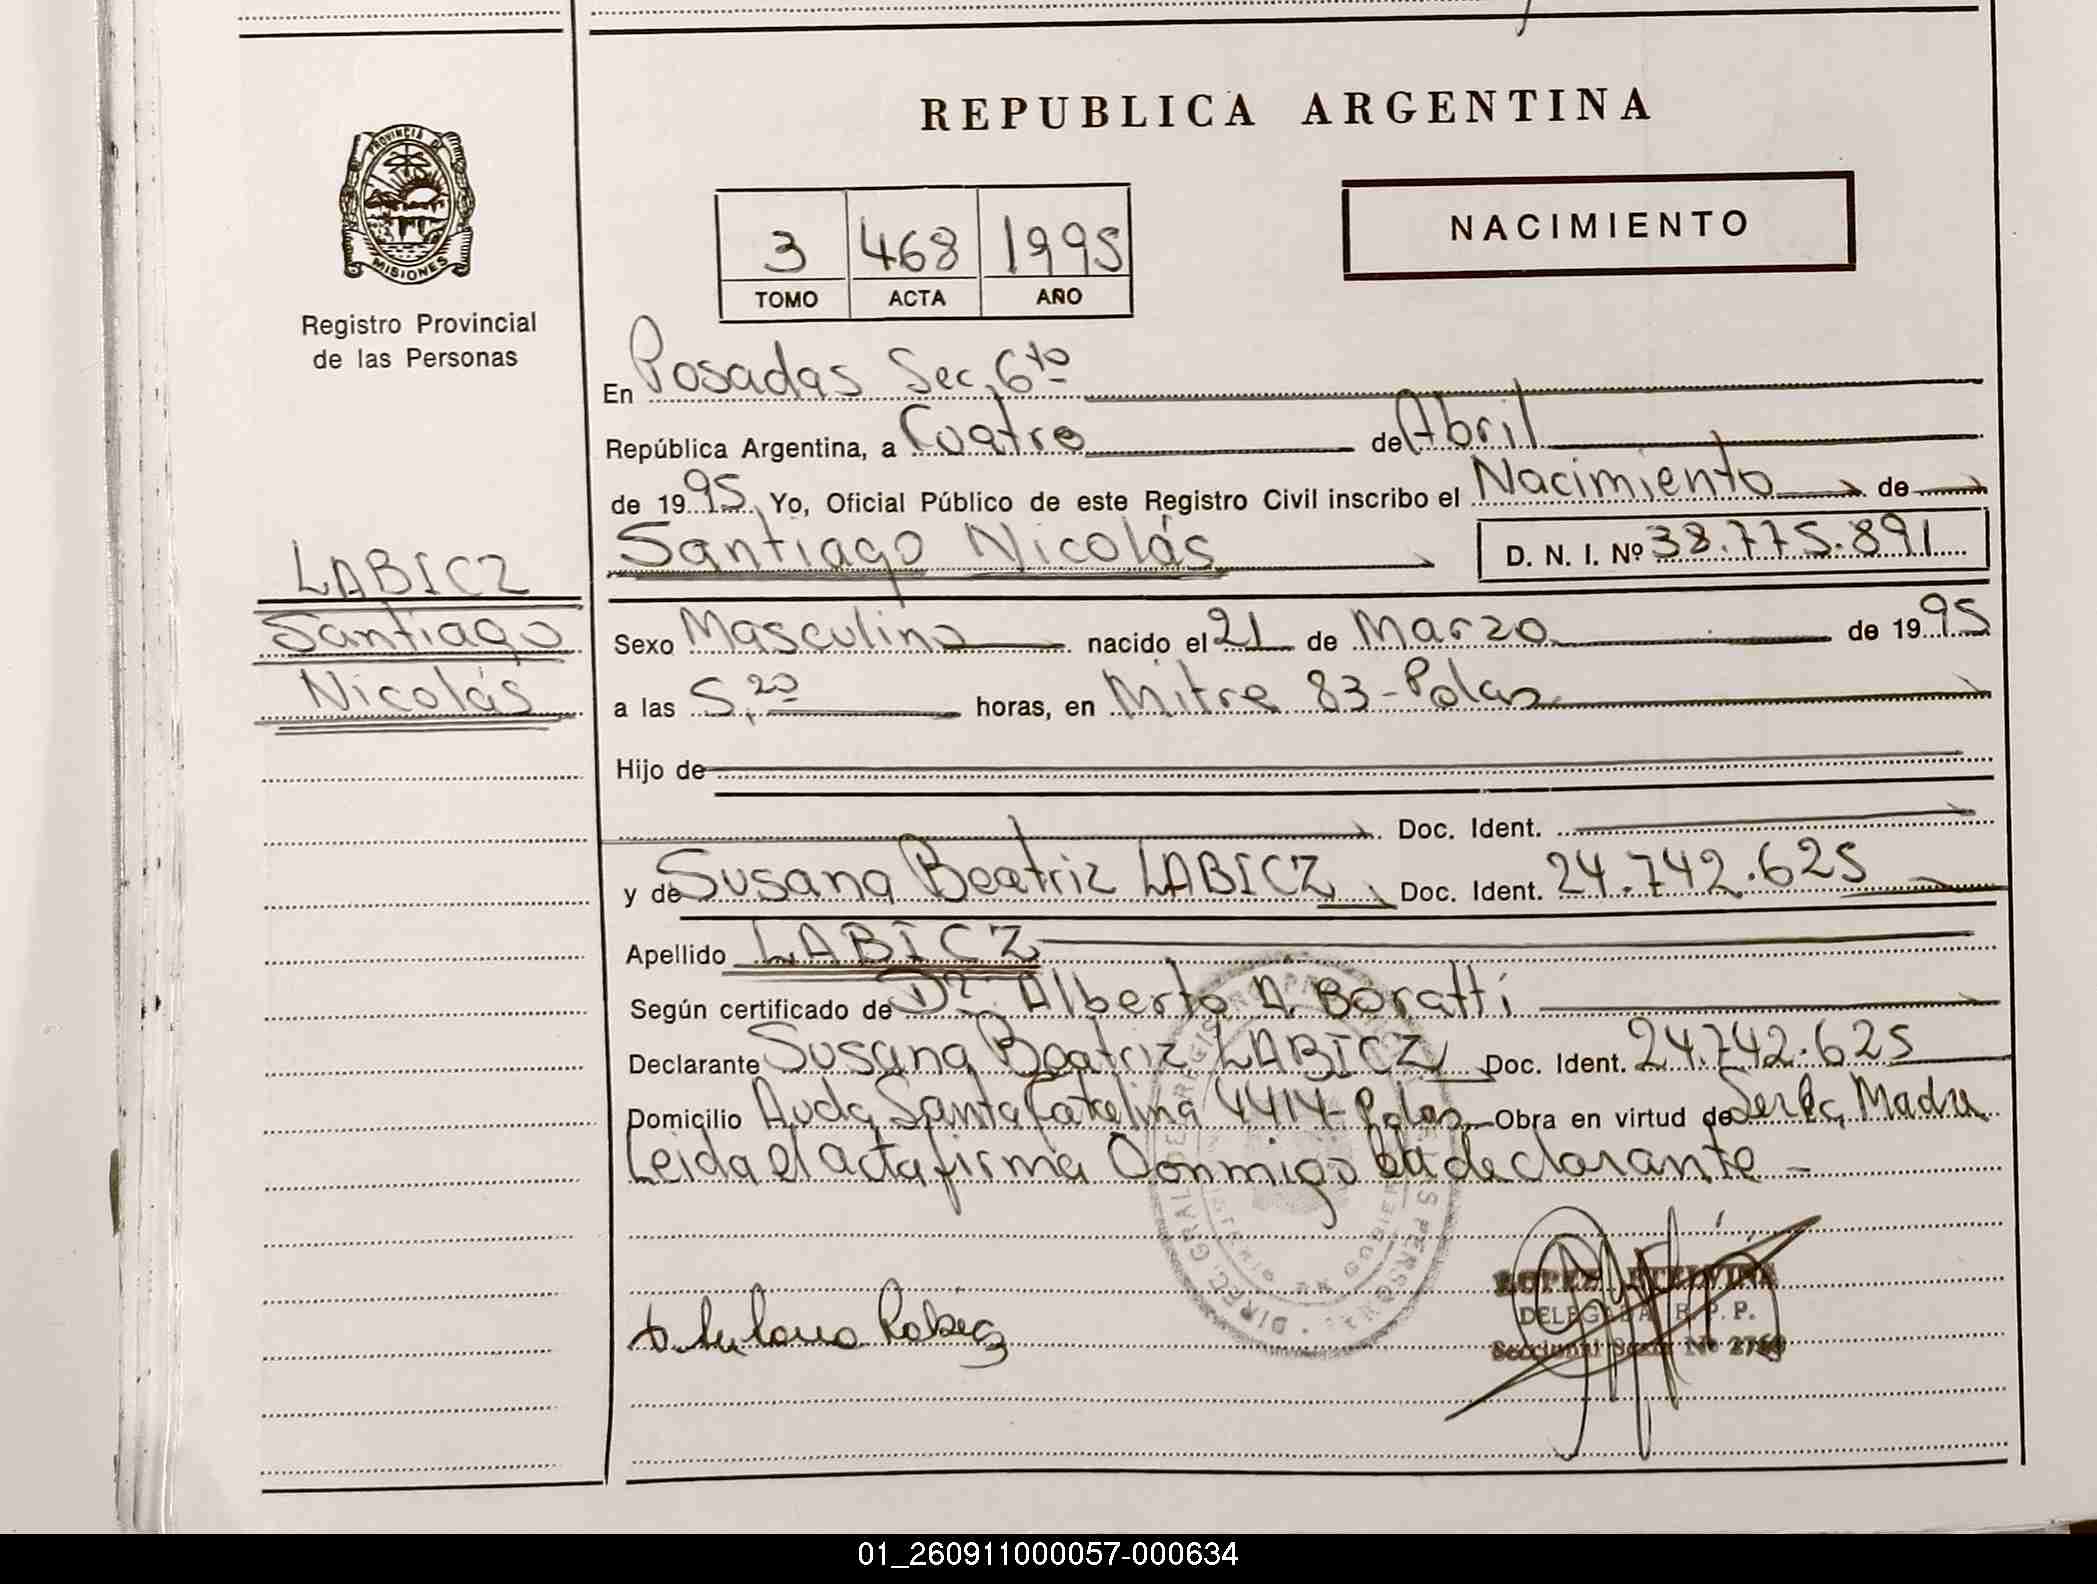 REPUBLICA ARGENTINA
PROVINCIA DE
MISIONES
Registro Provincial
de las Personas
3 468 1995
TOMO ACTA AÑO
NACIMIENTO
En Posadas Sec. 6to
República Argentina, a Cuatro de Abril
de 1995. Yo, Oficial Público de este Registro Civil inscribo el Nacimiento de
Santiago Nicolás D. N. I. Nº 38.775.891
LABICZ
Santiago
Nicolás
Sexo Masculino nacido el 21 de Marzo de 1995
a las 5,20 horas, en Mitre 83-Pdas
Hijo de
Doc. Ident.
y de Susana Beatriz LABICZ Doc. Ident. 24.742.625
Apellido LABICZ
Según certificado de Dr. Alberto A. Boratti
Declarante Susana Beatriz LABICZ Doc. Ident. 24.742.625
Domicilio Avda Santa Catalina 4414-Pdas Obra en virtud de Ser la Madre
Leida el acta firma Conmigo la declarante -
LOPEZ ETELVINA
DELEGADA R.P.P.
Seccional Sexta Nº 2760
01_260911000057-000634